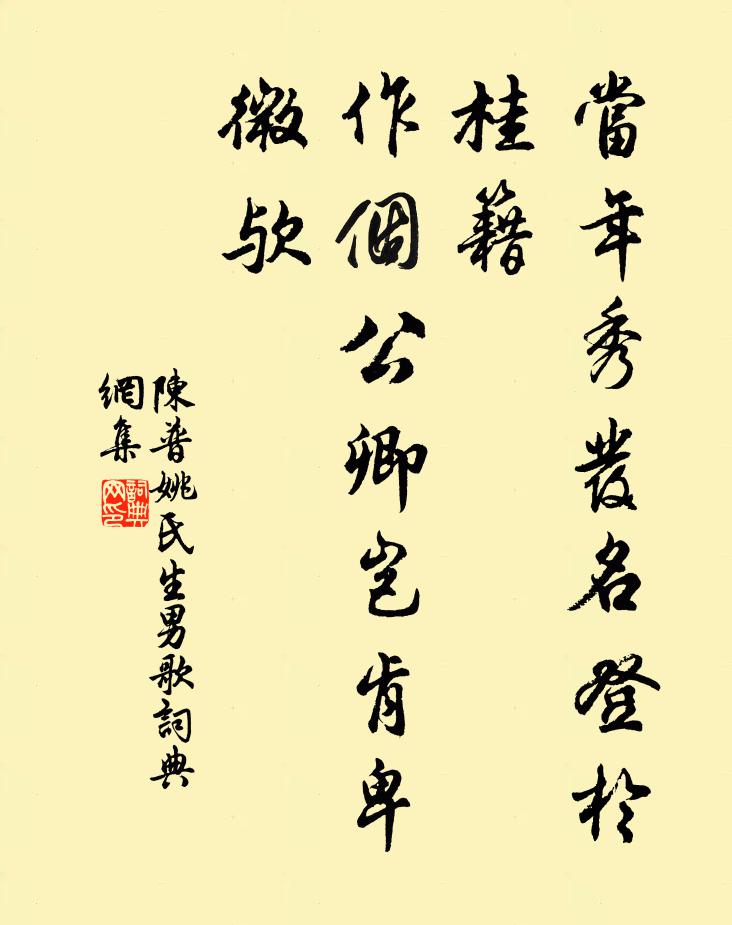 當年秀發名登於
桂籍
作個公卿豈肯卑
微欤
陳普姚氏生男歌詞典
網集
詞典
网印